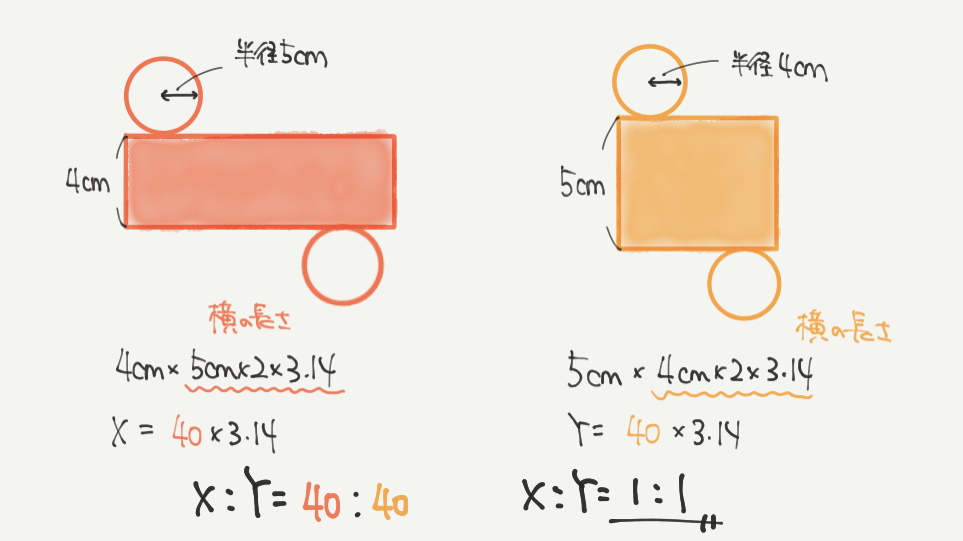 半径5cm
4cm
横の長さ
4cm×5cm×2×3.14
X = 40×3.14
X:Y=40:40
半径4cm
5cm
横の長さ
5cm×4cm×2×3.14
Y= 40×3.14
X:Y=1:1